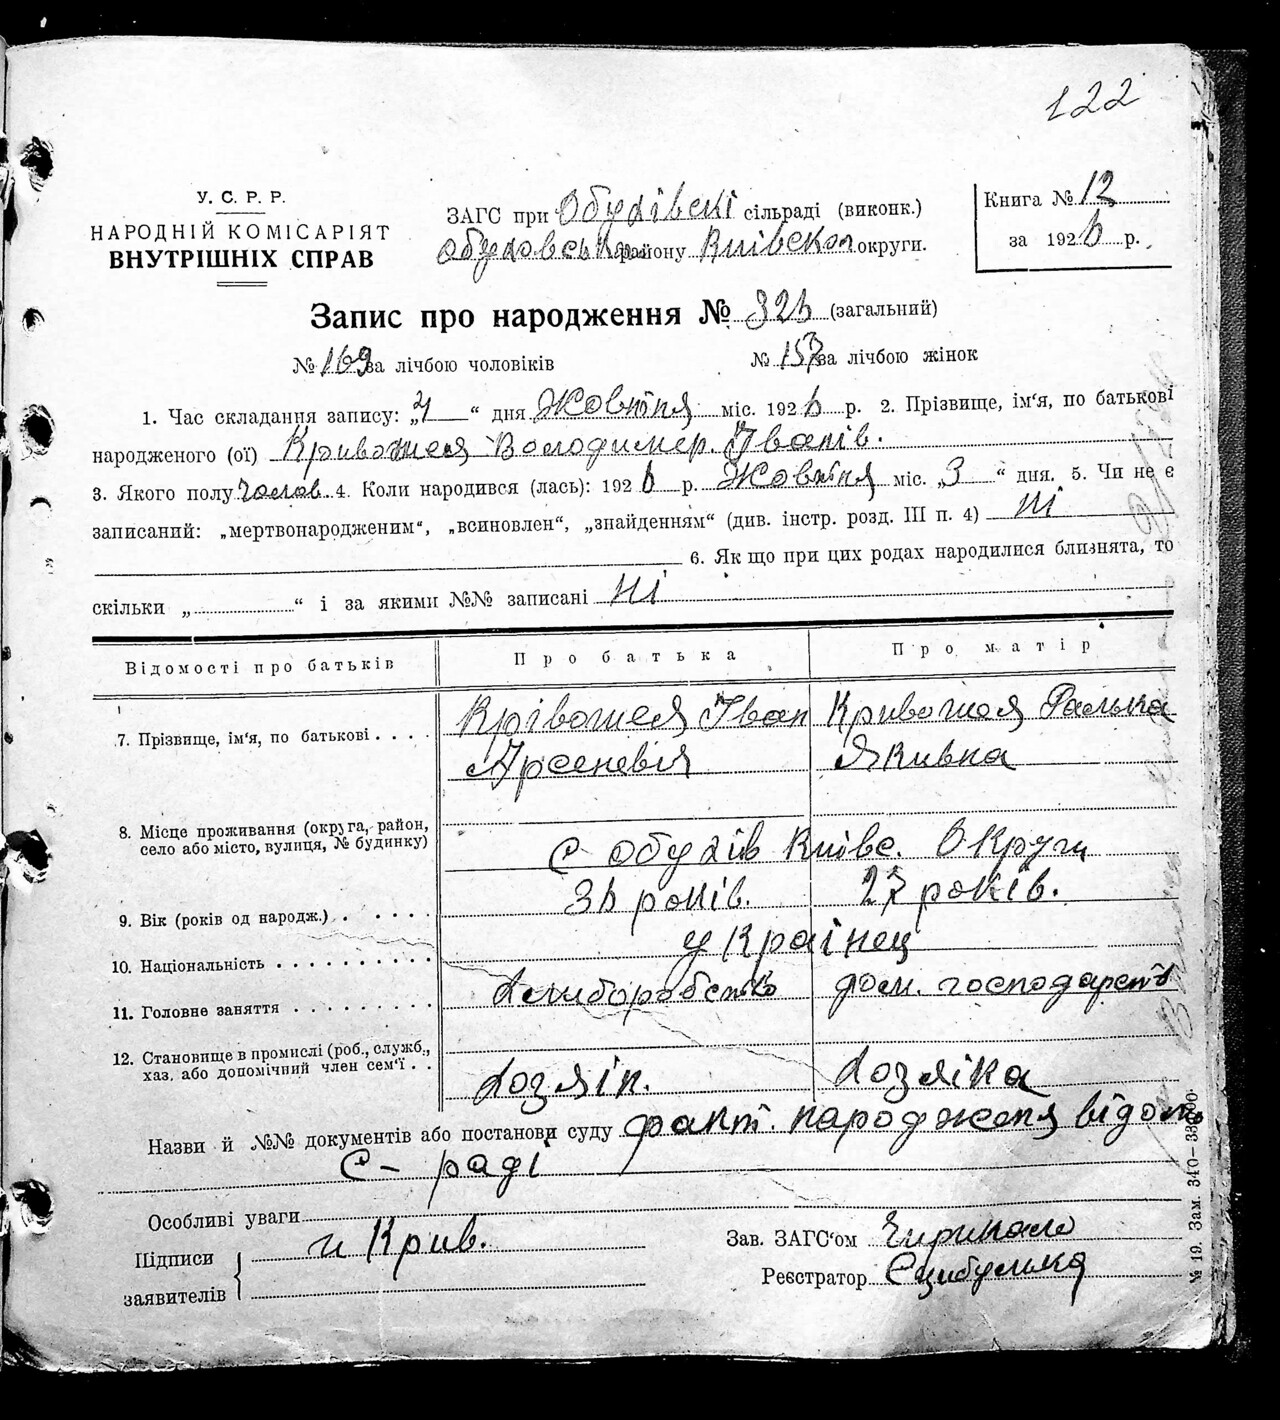 122
У. С. Р. Р.
НАРОДНІЙ КОМІСАРІЯТ
ВНУТРІШНІХ СПРАВ
ЗАГС при Обухівскі сільраді (виконк.)
Обуховськ району Київскоі округи.
Книга № 12
за 1926 р.
Запис про народження № 326 (загальний)
№ 169 за лічбою чоловіків
№ 157 за лічбою жінок
1. Час складання запису: „4 “ дня Жовтня міс. 1926 р. 2. Прізвище, ім‘я, по батькові
народженого (ої) Кривошея Володимер. Іванів.
3. Якого полу Чолов 4. Коли народився (лась): 1926 р. Жовтня міс. „3 “ дня. 5. Чи не є
записаний: „мертвонародженим“, „всиновлен“, „знайденням“ (див. інстр. розд. III п. 4) Ні
6. Як що при цих родах народилися близнята, то
скільки „ “ і за якими №№ записані Ні
Відомості про батьків
Про батька
Про матір
7. Прізвище, ім‘я, по батькові
Крівошея Іван
Арсеневія
Кривошея Галька
Якивна
8. Місце проживання (округа, район,
село або місто, вулиця, № будинку)
С Обухів Київс. Округи
9. Вік (років од народж.)
36 років.
27 років.
10. Національність
украінец
11. Головне заняття
Хлиборобство
дом. господарств
12. Становище в промислі (роб., служб.,
хаз. або допомічний член сем‘ї
Хозяін.
Хозяіка
Назви й №№ документів або постанови суду факт. народженя відом
С- раді
Особливі уваги
Підписи
заявителів
и Крив.
Зав. ЗАГС‘ом
Реєстратор Єцибулька
№ 19. Зам. 340—33000